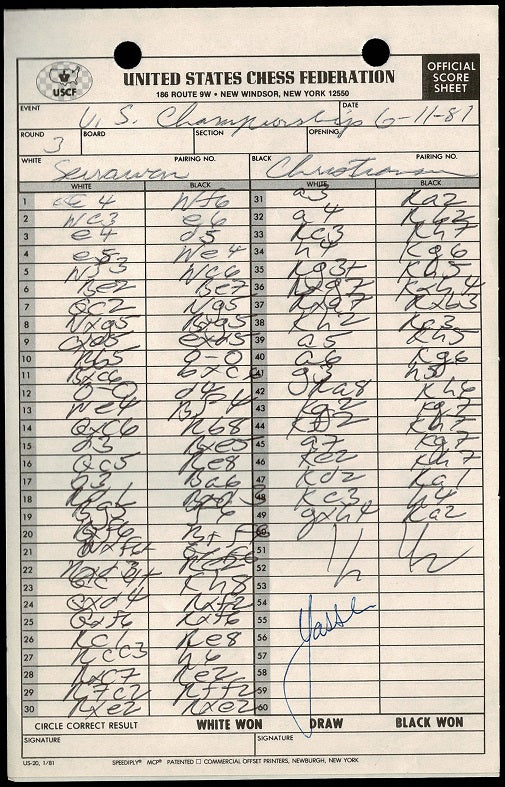 USCF
UNITED STATES CHESS FEDERATION
186 ROUTE 9W • NEW WINDSOR, NEW YORK 12550
OFFICIAL
SCORE
SHEET
EVENT U. S. Championship DATE 6-11-81
ROUND 3 BOARD SECTION OPENING
WHITE Seirawan PAIRING NO. BLACK Christiansen PAIRING NO.
WHITE BLACK WHITE BLACK
1 c4 Nf6 31 a3 Ra2
2 Nc3 e6 32 a4 Rb2
3 e4 d5 33 Rc3 Kh7
4 e5 Ne4 34 h4 Kg6
5 Nf3 Nc6 35 Rg3+ Kh5
6 Be2 Be7 36 Rxg7 Kxh4
7 Qc2 Ng5 37 Rxa7 Rxb3
8 Nxg5 Bxg5 38 Kh2
9 cxd5 exd5 39 a5 Kh5
10 0-0 40 a6 Kg6
11 Bxc6 bxc6 41 g3 h5
12 0-0 d4 42 Ra8 Kh6
13 Ne4 43 Kg2 Kg7
14 Qxc6 Rb8 44 Kf2 Kh7
15 d3 Bxe5 45 a7 Kg7
16 Qc5 Re8 46 Ke2 Kh7
17 g3 Ba6 47 Kd2 Ra1
18 48 Kc3 h4
19 Bg5 f6 49 gxh4 Ra2
20 Bxf6 50
21 Nxf6+ 51 ½ ½
22 52
23 Kh8 53
24 Qxd4 Rxf2 54 Yasse
25 Qxf6 Rxf6 55
26 Rc1 Re8 56
27 Rcc3 h6 57
28 Rxc7 Re2 58
29 R7c2 Rff2 59
30 Rxe2 Rxe2 60
CIRCLE CORRECT RESULT WHITE WON DRAW BLACK WON
SIGNATURE SIGNATURE
US-20, 1/81 SPEEDIPLY® MCP® PATENTED □ COMMERCIAL OFFSET PRINTERS, NEWBURGH, NEW YORK